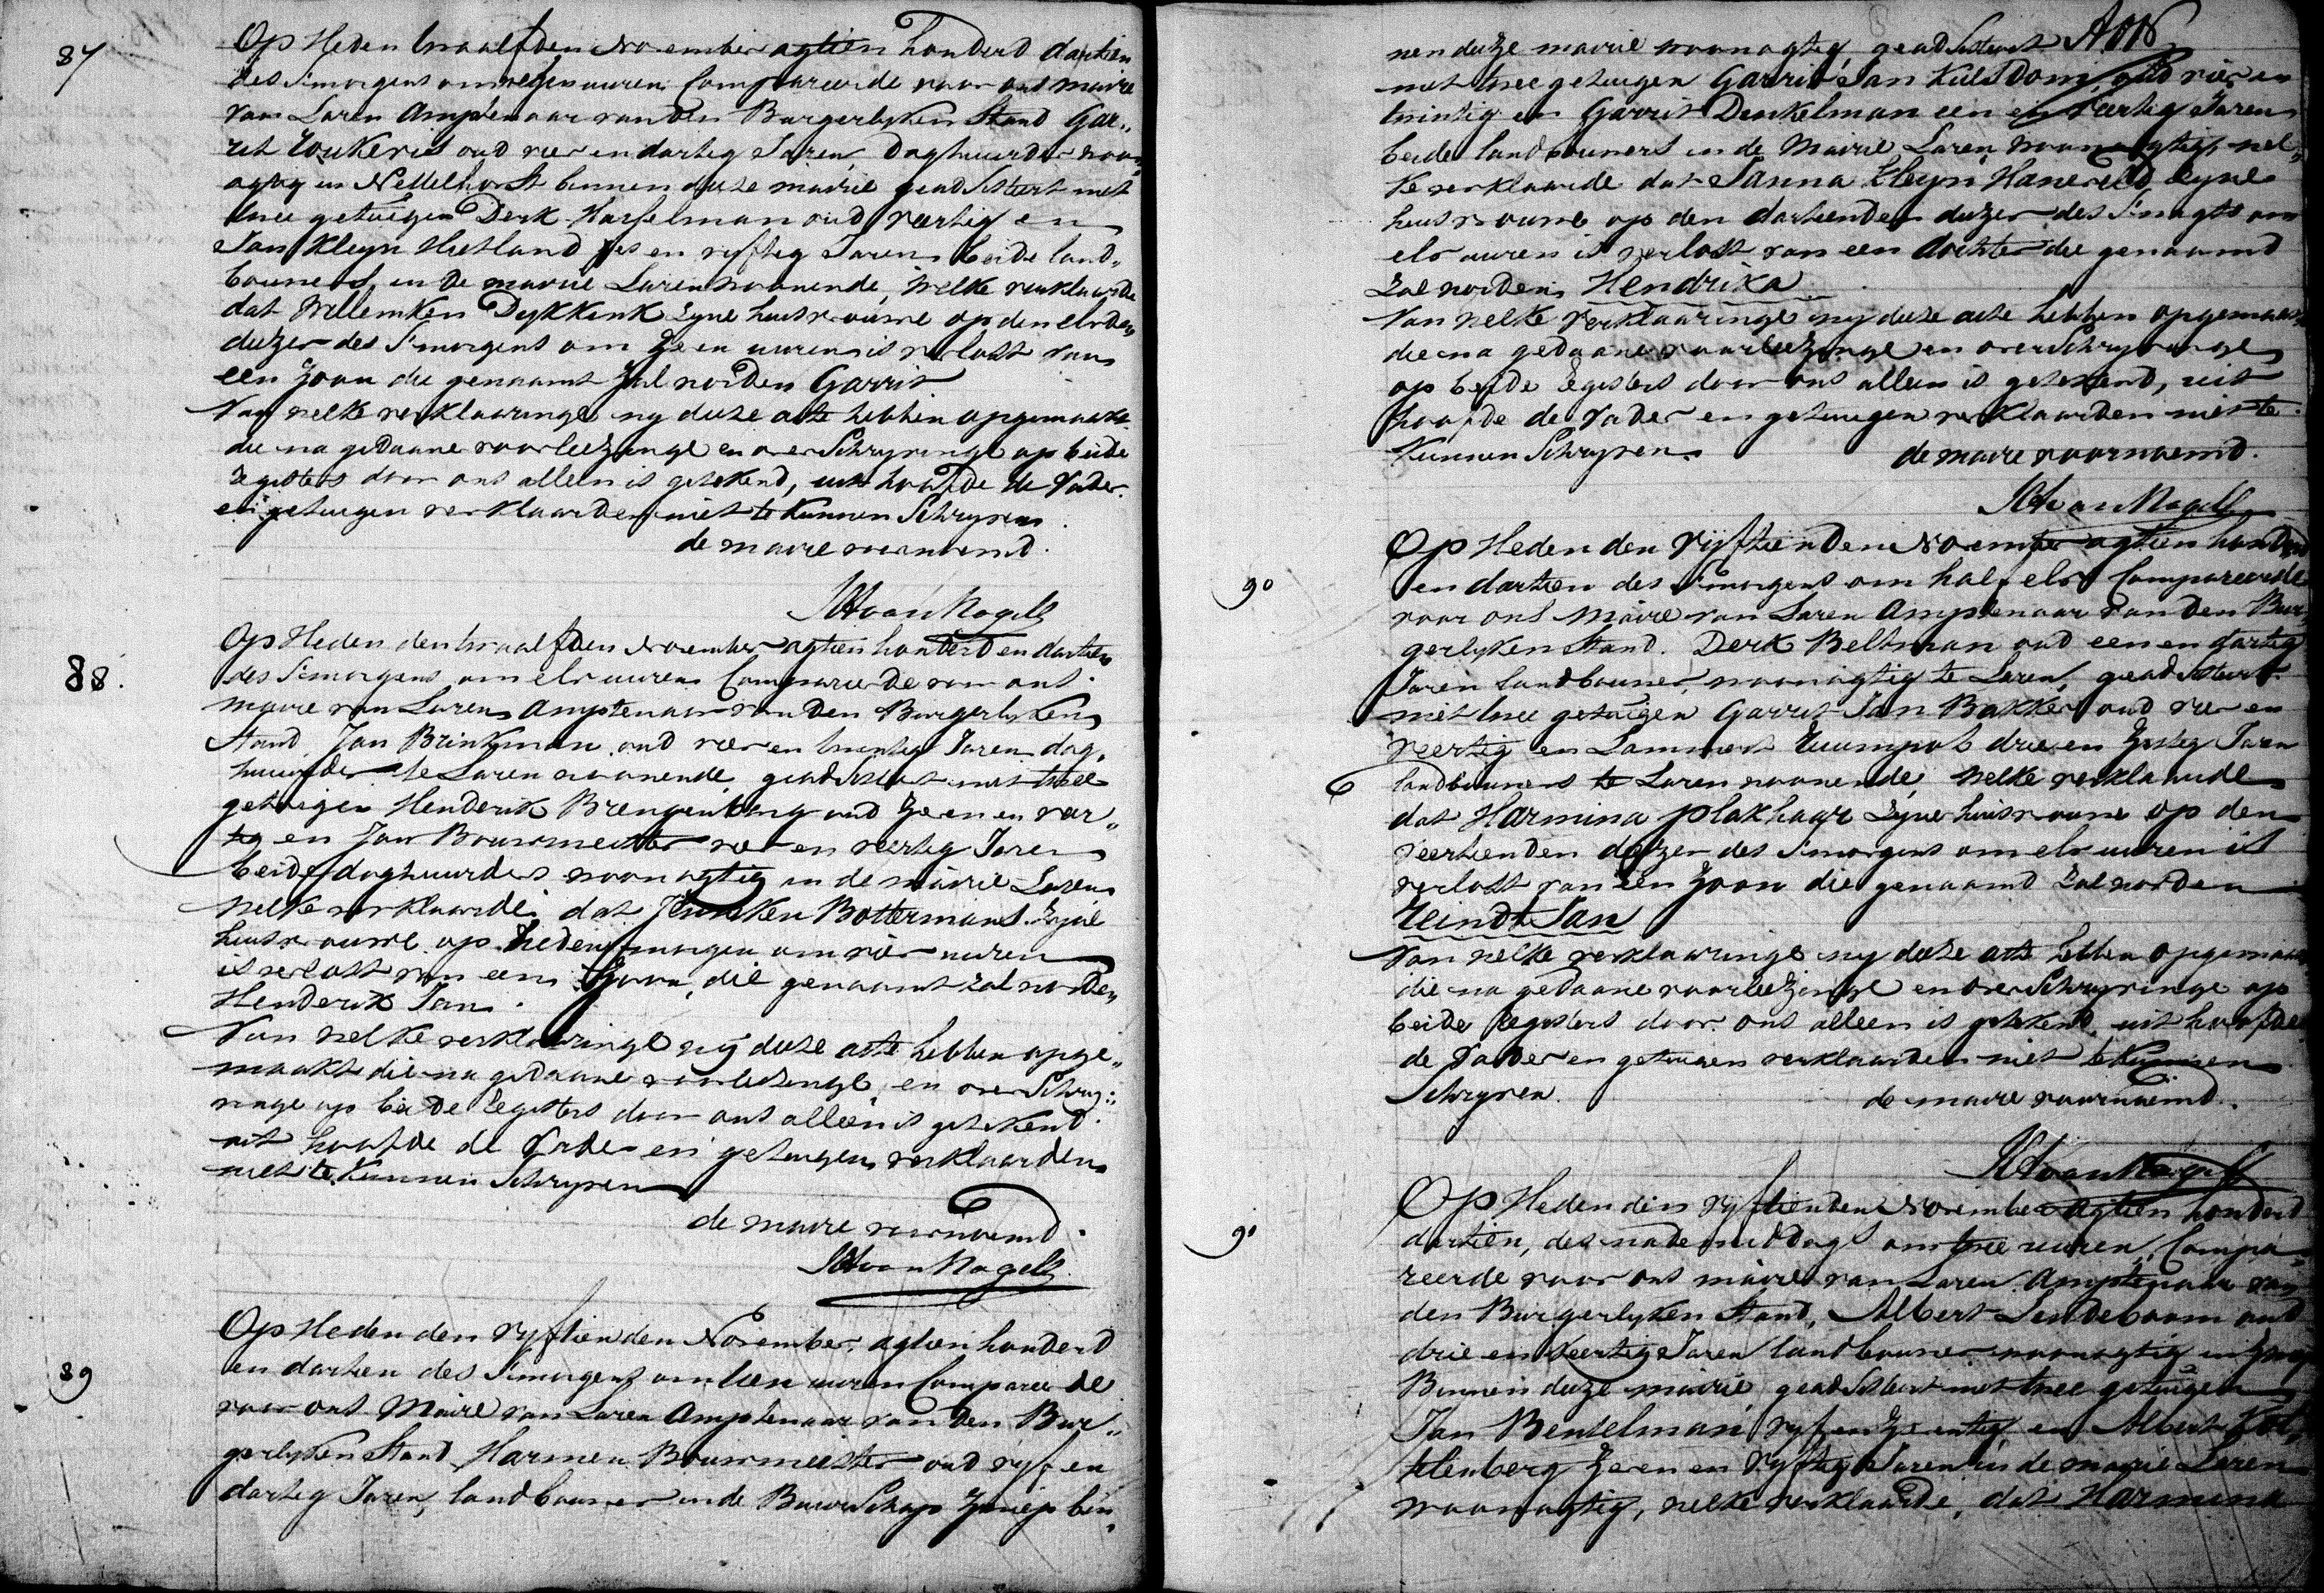 87
Op Heden twaalfden November agtien honderd dartien
des S'morgens om negen uuren Compareerde voor ons maire
van Laren Amptenaar van den Burgerlyken Stand Gar„
rit oud vier en dartig Jaren Daghuurder woon„
agtig in Nettelhorst binnen deze mairie geadsisteert met
twee getuigen Derk Harselman oud veertig en
Jan Kleyn Hietland zes en vyftig Jaren beide land„
bouwers in de mairie Laren woonende, welke verklaarde
dat Willemken Dykkink zyne huisvrouwe op den elvden
dezer des S'morgens om zeven uuren is verlost van
een zoon die genaamt zal worden Garrit
Van welke verklaringe wy deze acte hebben opgemaakt
die na gedaane voorleezinge en overSchryvinge op beide
registers door ons alleen is getekend, uit hoofde de Vader
en getuigen verklaarden niet te Kunnen Schryven
de maire voornoemd.
van Nagell
88.
Op Heden den twaalfden November agtien honderd en dartien
des S'morgens om elv uuren Compareerde voor ons
maire van Laren Amptenaar van den Burgerlyken
Stand, Jan Brinkman oud vier en twintig Jaren dag„
huurder te Laren woonende geadsisteert met twee
getuigen Henderik Brengenberg oud zeven en veer„
tig en Jan Bouwmeester vier en veertig Jaren
beide daghuurders woonagtig in de mairie Laren
welke verklaarde dat Jenneken Bottermans zyne
huisvrouwe op heden morgen om vier uuren
is verlost van een Zoon, die genaamt zal worden
Henderik Jan.
Van welke verklaringe wy deze acte hebben opge„
maakt die na gedaane voorlezinge en overSchry„
vinge op beide registers door ons alleen is getekend.
uit hoofde de Vader en getuigen verklaarden
niet te Kunnen Schryven
de maire voornoemd.
van Nagell
89
Op Heden den vyftienden November agtien honderd
en dartien des S'morgens om tien uuren Compareerde
voor ons Maire van Laren Amptenaar van den Bur„
gerlyken Stand Harmen Bouwmeester oud vyf en
dartig Jaren, landbouwer in de BuurSchap Zwiep bin„
nen deze mairie woonagtig geadsisteert
met twee getuigen Garrit Jan Kuls oud vier en
twintig en Garrit Denkelman een en veertig Jaren
beide landbouwers in de Mairie Laren woonagtig, wel„
ke verklaarde dat Janna Kleyn Haneveld zyne
huisvrouwe op den dartienden dezer des S'nagts om
elv uuren is verlost van een dochter die genaamd
zal worden Hendrika
Van welke verklaaringe wy deze acte hebben opgemaakt
die na gedaane voorleezinge en overSchryvinge
op beide registers door ons alleen is getekend, uit
hoofde de Vader en getuigen verklaarden niet te
Kunnen Schryven.
de maire voornoemd.
van Nagell
90
Op Heden den Vyftienden November agtien honderd
en dartien des S'morgens om half elv Compareerde
voor ons Maire van Laren Amptenaar van den Bur„
gerlyken Stand. Derk Beltman oud een en dartig
Jaren landbouwer, woonagtig te Laren, geadsisteert
met twee getuigen Garrit Jan Bakker oud vier en
veertig en Lammert drie en zestig Jaren
landbouwers te Laren woonende, welke verklaarde
dat Harmina Plakhaar zyne huisvrouwe op den
veertienden dezer des S'morgens om elv uuren is
verlost van een Zoon die genaamd zal worden
Reindt Jan
Van welke verklaringe wy deze acte hebben opgemaakt
die na gedaane voorleezinge en overSchryvinge op
beide registers door ons alleen is getekend uit hoofde
de Vader en getuigen verklaarden niet te Kunnen
Schryven.
de maire voornoemd.
van Nagell
91
Op Heden den vyftienden November agtien honderd
dartien, des nademiddags om twee uuren, Compa„
reerde voor ons maire van Laren Amptenaar van
den Burgerlyken Stand, Albert Lindeboom oud
drie en veertig Jaren landbouwer woonagtig in
Binnen deze mairie geadsisteert met twee getuigen
Jan Bentelman vyf en zeventig en Albert
telenberg zeven en vyftig Jaren in de mairie Laren
woonagtig, welke verklaarde, dat Harmina